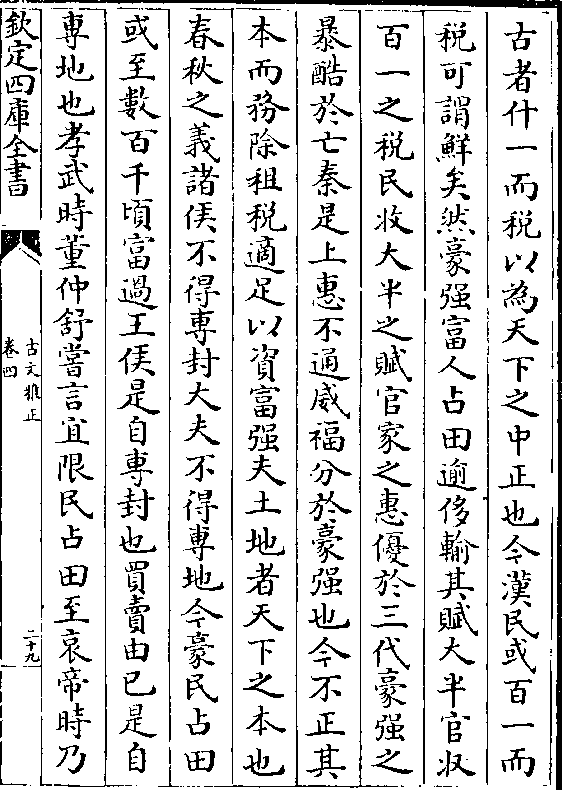 古者什一而税以為天下之中正也今漢民或百一而
税可謂鮮矣然豪强富人占田逾侈輸其賦大半官收
百一之税民收大半之賦官家之惠優於三代豪强之
暴酷於亡秦是上惠不通威福分於豪强也今不正其
本而務除租税適足以資富强夫土地者天下之本也
春秋之義諸侯不得専封大夫不得専地今豪民占田
或至數百千頃富過王侯是自専封也買賣由已是自
専地也孝武時董仲舒嘗言宜限民占田至哀帝時乃
欽定四庫全書
古文雅正
卷四
二十九